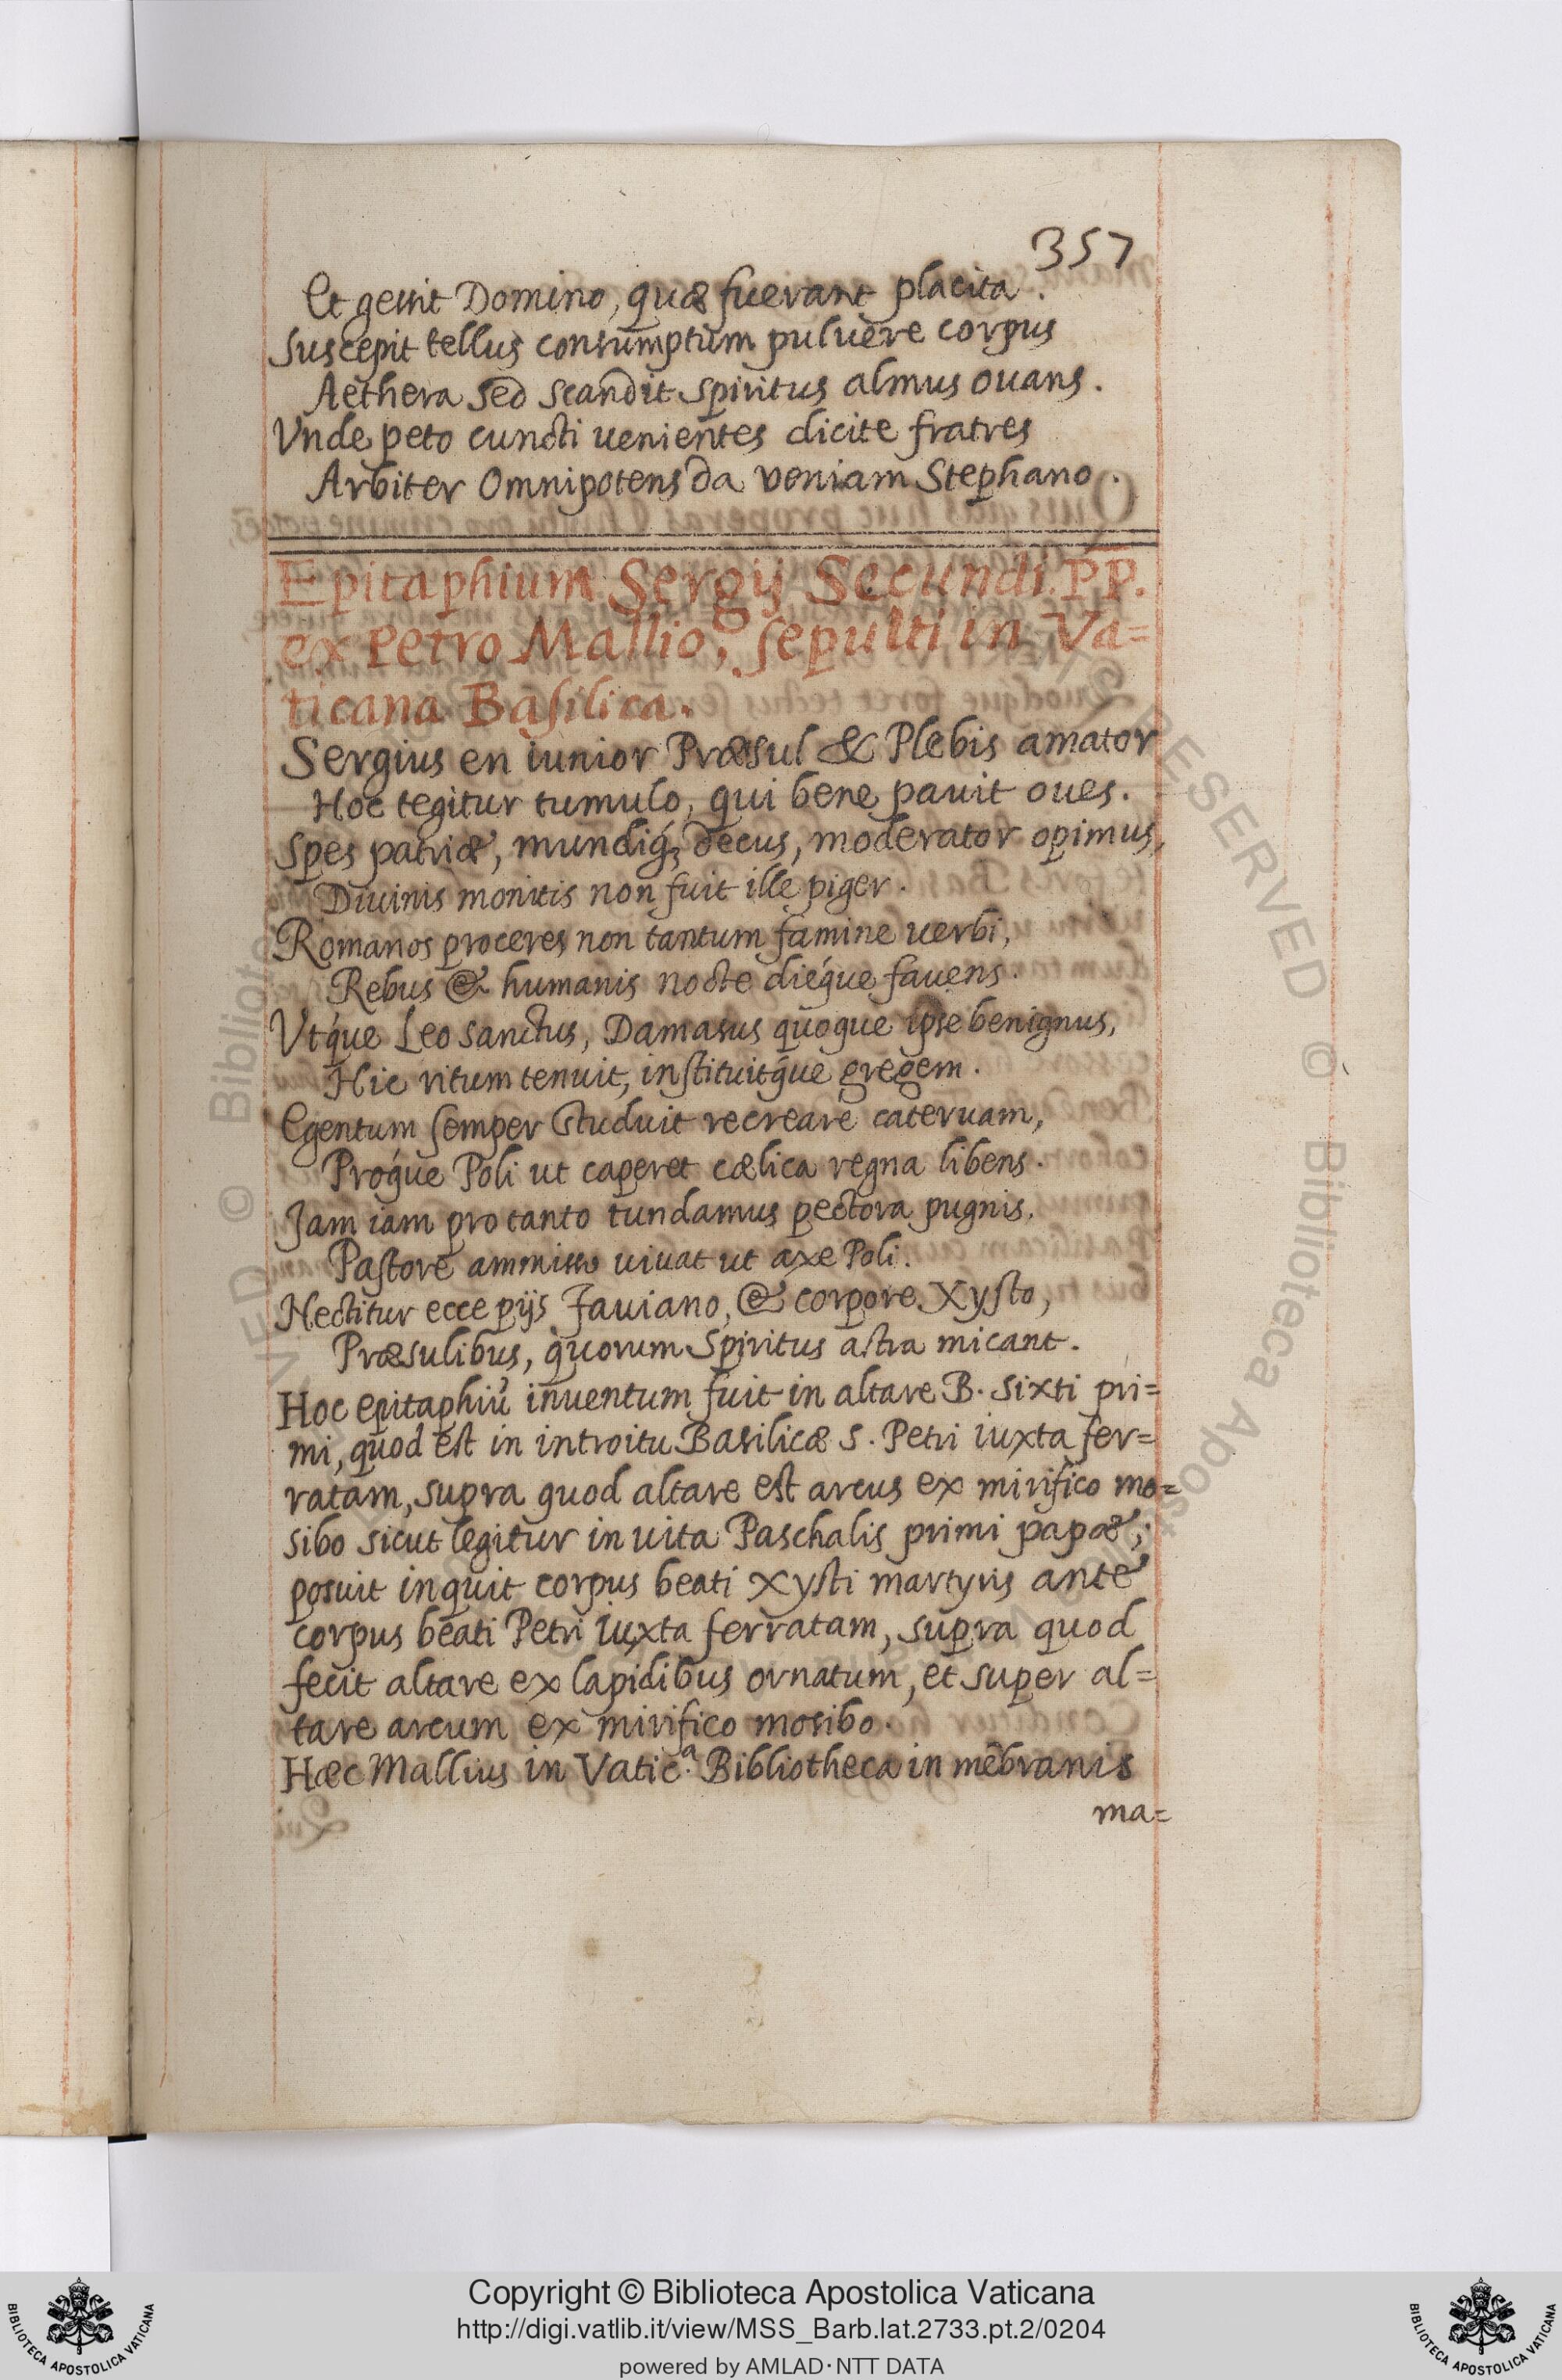 357
Et gessit Domino, quæ fuerant placita.
Suscepit tellus consumptum puluere corpus
Aethera sed scandit spiritus almus ouans.
Vnde peto cuncti uenientes dicite fratres
Arbiter Omnipotens da veniam Stephano.
Epitaphium Sergij Secundi. PP.
ex Petro Mallio, sepulti in Va=
ticana Basilica.
Sergius en iunior Præsul & Plebis amator
Hoc tegitur tumulo, qui bene pauit oues.
Spes patriæ, mundiq́; decus, moderator opimus,
Diuinis monitis non fuit ille piger.
Romanos proceres non tantum famine uerbi,
Rebus & humanis nocte dieq́ue fauens.
Vtq́ue Leo sanctus, Damasus quoque ipse benignus,
Hic ritum tenuit, instituitq́ue gregem.
Egentum semper studuit recreare cateruam,
Proq́ue Poli ut caperet cælica regna libens.
Jam iam pro tanto tundamus pectora pugnis,
Pastore ammisso uiuat ut axe Poli.
Nectitur ecce pijs Fauiano, & corpore Xysto,
Præsulibus, quorum Spiritus astra micant.
Hoc epitaphiũ inuentum fuit in altare B. Sixti pri=
mi, quod est in introitu Basilicæ S. Petri iuxta fer=
ratam, supra quod altare est arcus ex mirifico mo=
sibo sicut legitur in uita Paschalis primi papæ;
posuit inquit corpus beati Xysti martyris ante
corpus beati Petri iuxta ferratam, supra quod
fecit altare ex lapidibus ornatum, et super al=
tare arcum ex mirifico mosibo.
Hæc Mallius in Vatic.ª Bibliotheca in mẽbranis
ma=
Copyright © Biblioteca Apostolica Vaticana
http://digi.vatlib.it/view/MSS_Barb.lat.2733.pt.2/0204
powered by AMLAD·NTT DATA
BIBLIOTECA APOSTOLICA VATICANA
BIBLIOTECA APOSTOLICA VATICANA